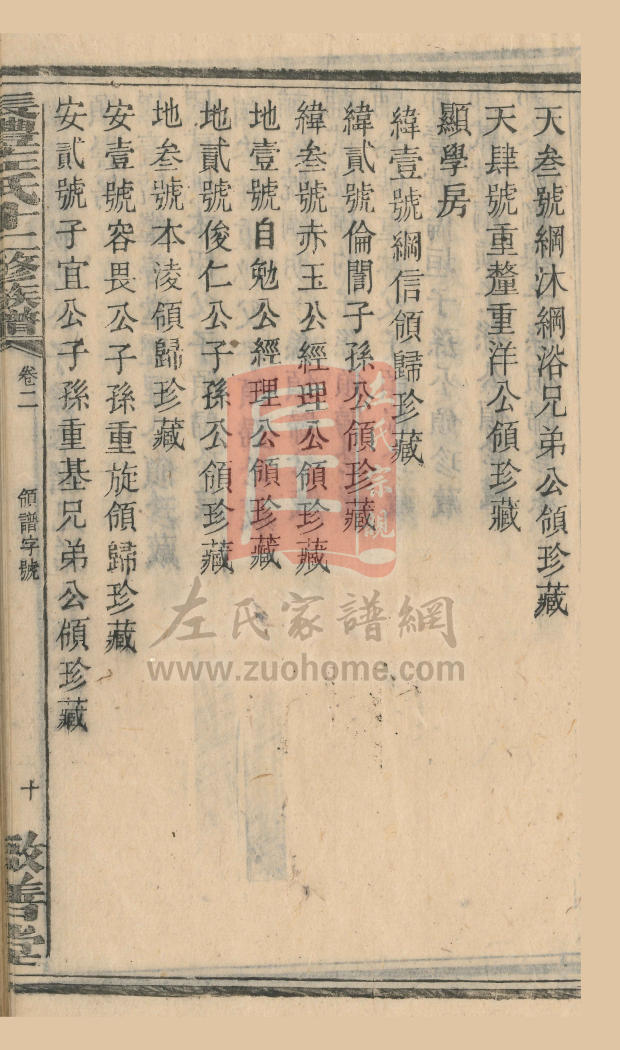 天叁號綱沐綱浴兄弟公領珍藏
天肆號重釐重洋公領珍藏
顯學房
緯壹號綱信領歸珍藏
緯貳號倫誾子孫公領珍藏
緯叁號赤玉公經理公領珍藏
地壹號自勉公經理公領珍藏
地貳號俊仁公子孫公領珍藏
地叁號本淩領歸珍藏
安壹號容畏公子孫重旋領歸珍藏
安貳號子宜公子孫重基兄弟公領珍藏
長澧左氏十二修族譜
卷二
領譜字號
十
敬善堂
左氏宗親
左氏家譜網
www.zuohome.com